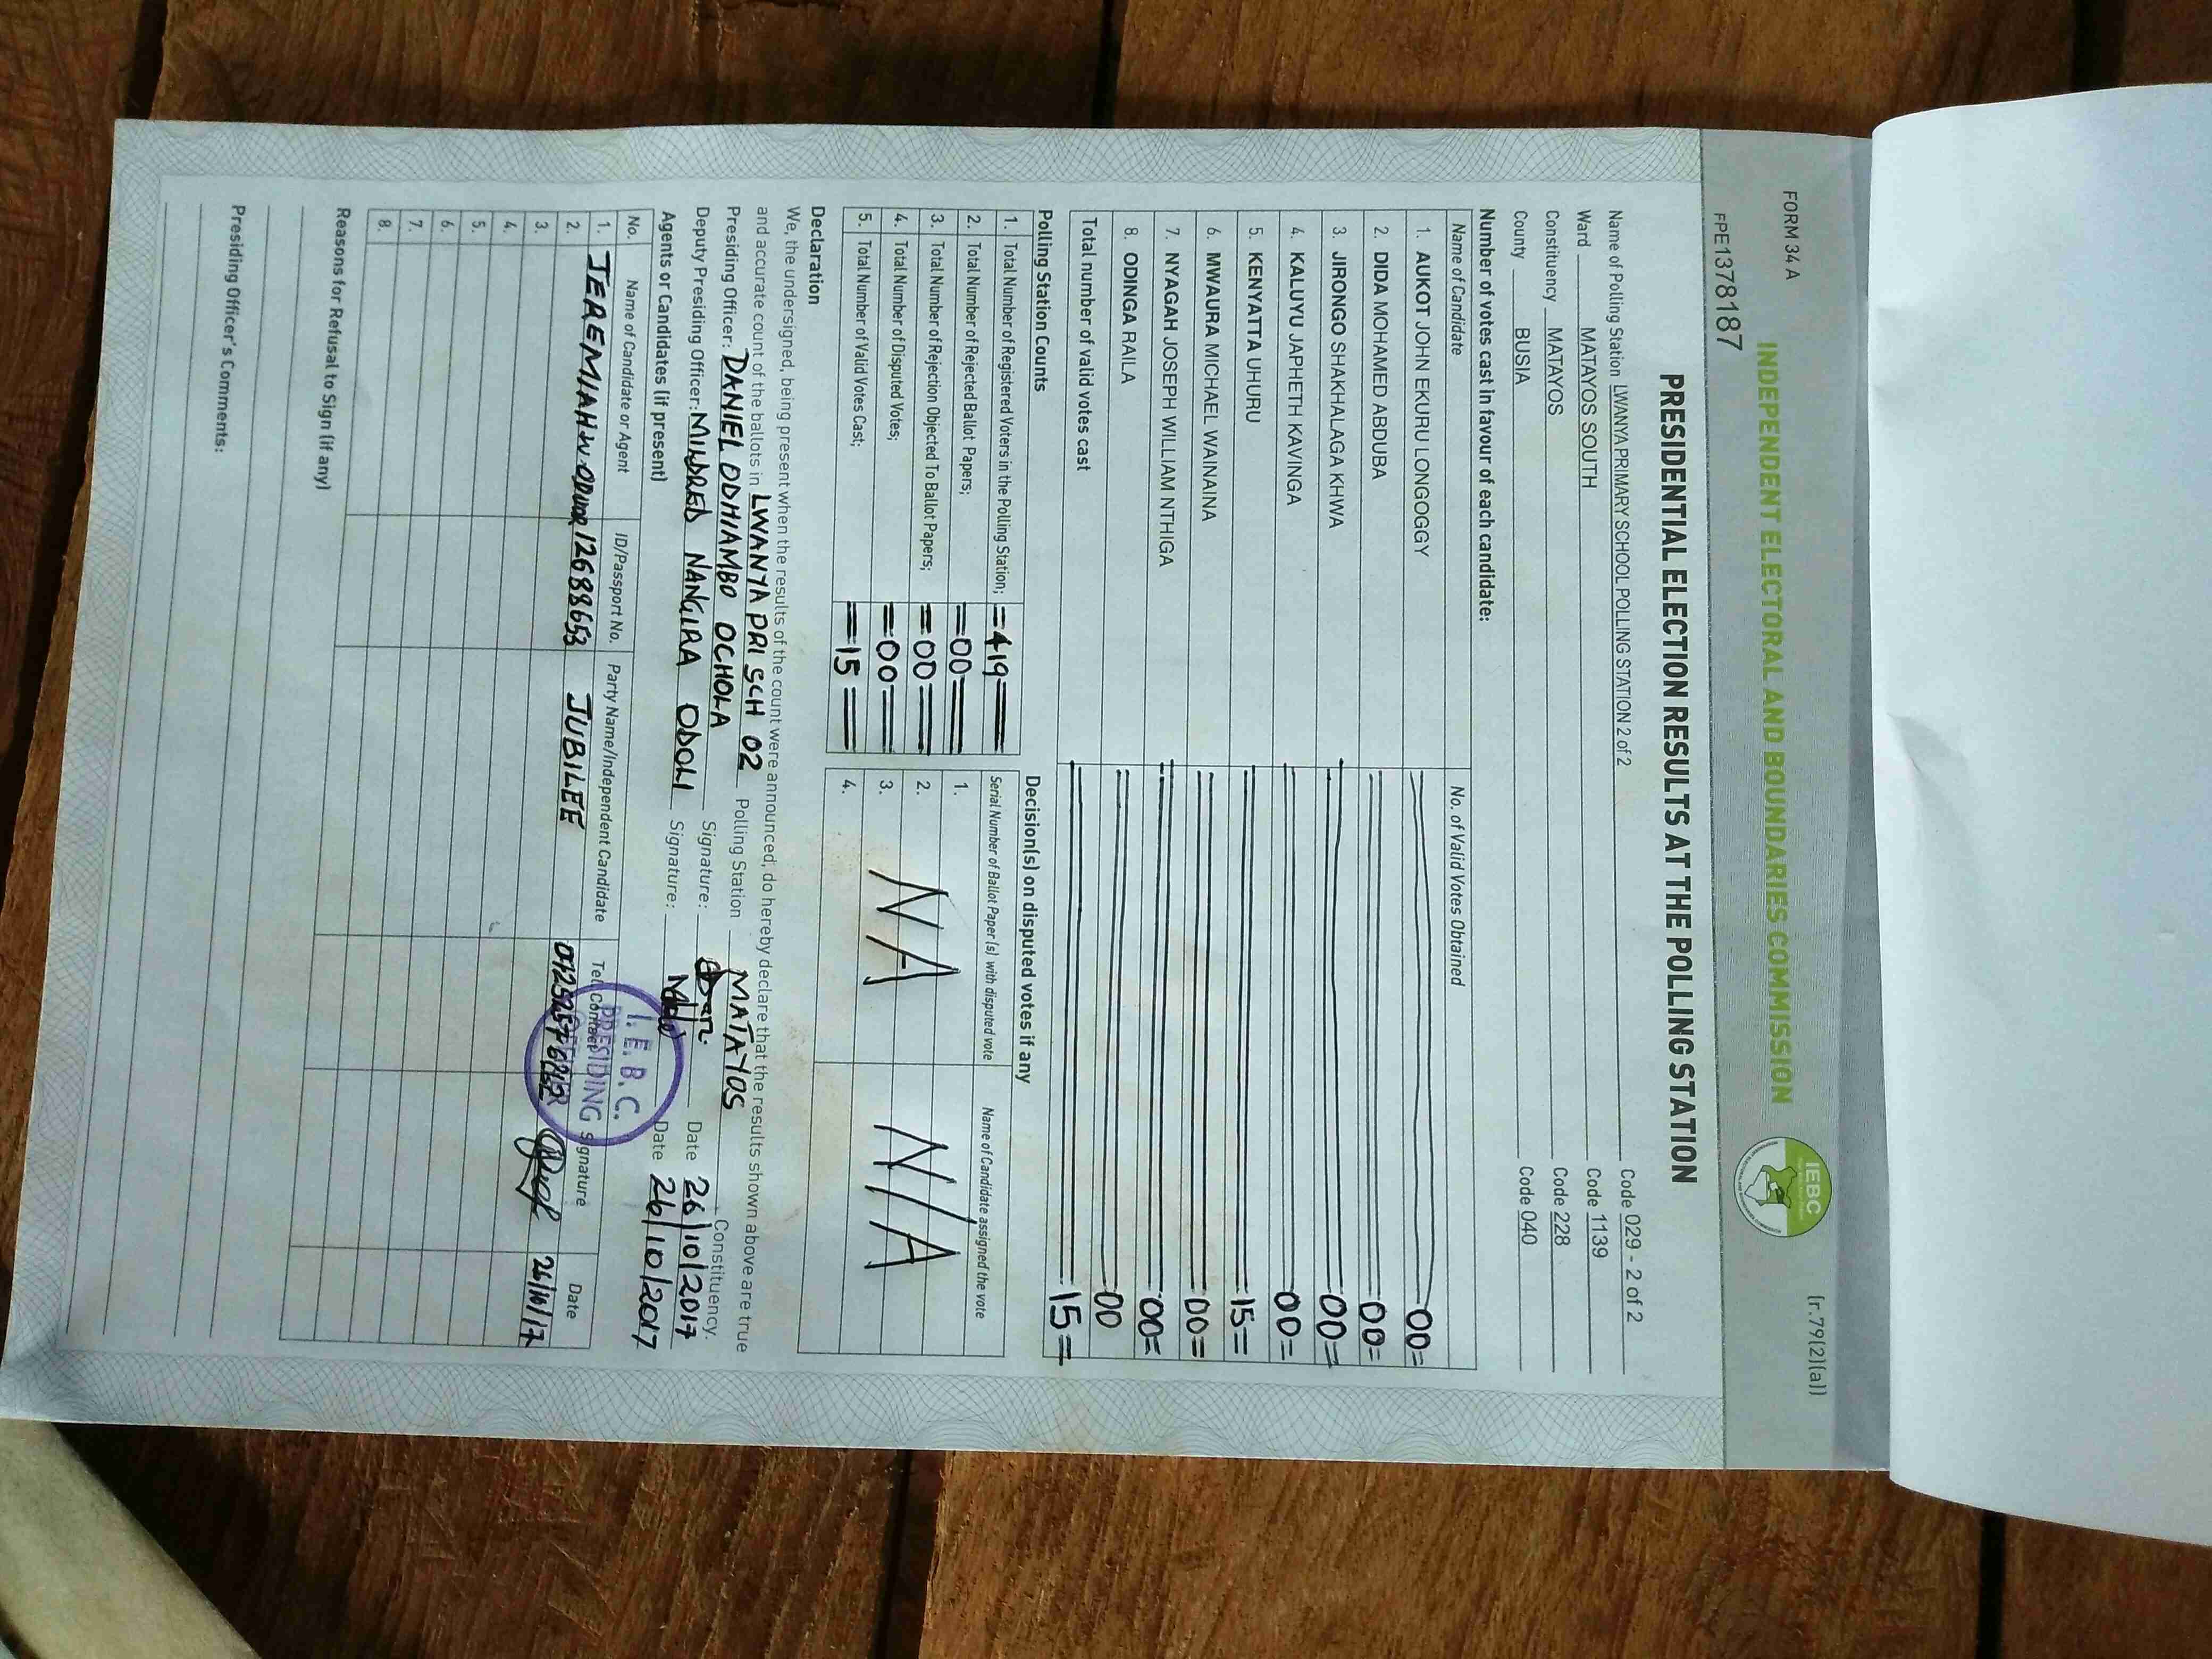 FORM 34 A
(r.79(2)(a))
INDEPENDENT ELECTORAL AND BOUNDARIES COMMISSION
IEBC
FPE1378187
PRESIDENTIAL ELECTION RESULTS AT THE POLLING STATION
Name of Polling Station LWANYA PRIMARY SCHOOL POLLING STATION 2 of 2 Code 029 - 2 of 2
Ward MATAYOS SOUTH Code 1139
Constituency MATAYOS Code 228
County BUSIA Code 040
Number of votes cast in favour of each candidate:
Name of Candidate No. of Valid Votes Obtained
1. AUKOT JOHN EKURU LONGOGGY 00=
2. DIDA MOHAMED ABDUBA 00=
3. JIRONGO SHAKHALAGA KHWA 00=
4. KALUYU JAPHETH KAVINGA 00=
5. KENYATTA UHURU 15=
6. MWAURA MICHAEL WAINAINA 00=
7. NYAGAH JOSEPH WILLIAM NTHIGA 00=
8. ODINGA RAILA 00
Total number of valid votes cast 15=
Polling Station Counts
1. Total Number of Registered Voters in the Polling Station; =419=
2. Total Number of Rejected Ballot Papers; =00=
3. Total Number of Rejection Objected To Ballot Papers; =00=
4. Total Number of Disputed Votes; =00=
5. Total Number of Valid Votes Cast; =15=
Decision(s) on disputed votes if any
Serial Number of Ballot Paper (s) with disputed vote Name of Candidate assigned the vote
1.
2.
3.
4.
N/A N/A
Declaration
We, the undersigned, being present when the results of the count were announced, do hereby declare that the results shown above are true
and accurate count of the ballots in LWANYA PRI SCH 02 Polling Station MATAYOS Constituency.
Presiding Officer: DANIEL ODHIAMBO OCHOLA Signature: Date 26/10/2017
Deputy Presiding Officer: MILDRED NANGIRA ODOLI Signature: Date 26/10/2017
Agents or Candidates (if present)
No. Name of Candidate or Agent ID/Passport No. Party Name/Independent Candidate Tel. Contact Signature Date
1. JEREMIAH W. ODUOR 12688653 JUBILEE 26/10/17
2.
3.
4.
5.
6.
7.
8.
I.E.B.C.
PRESIDING
Reasons for Refusal to Sign (if any)
Presiding Officer's Comments: